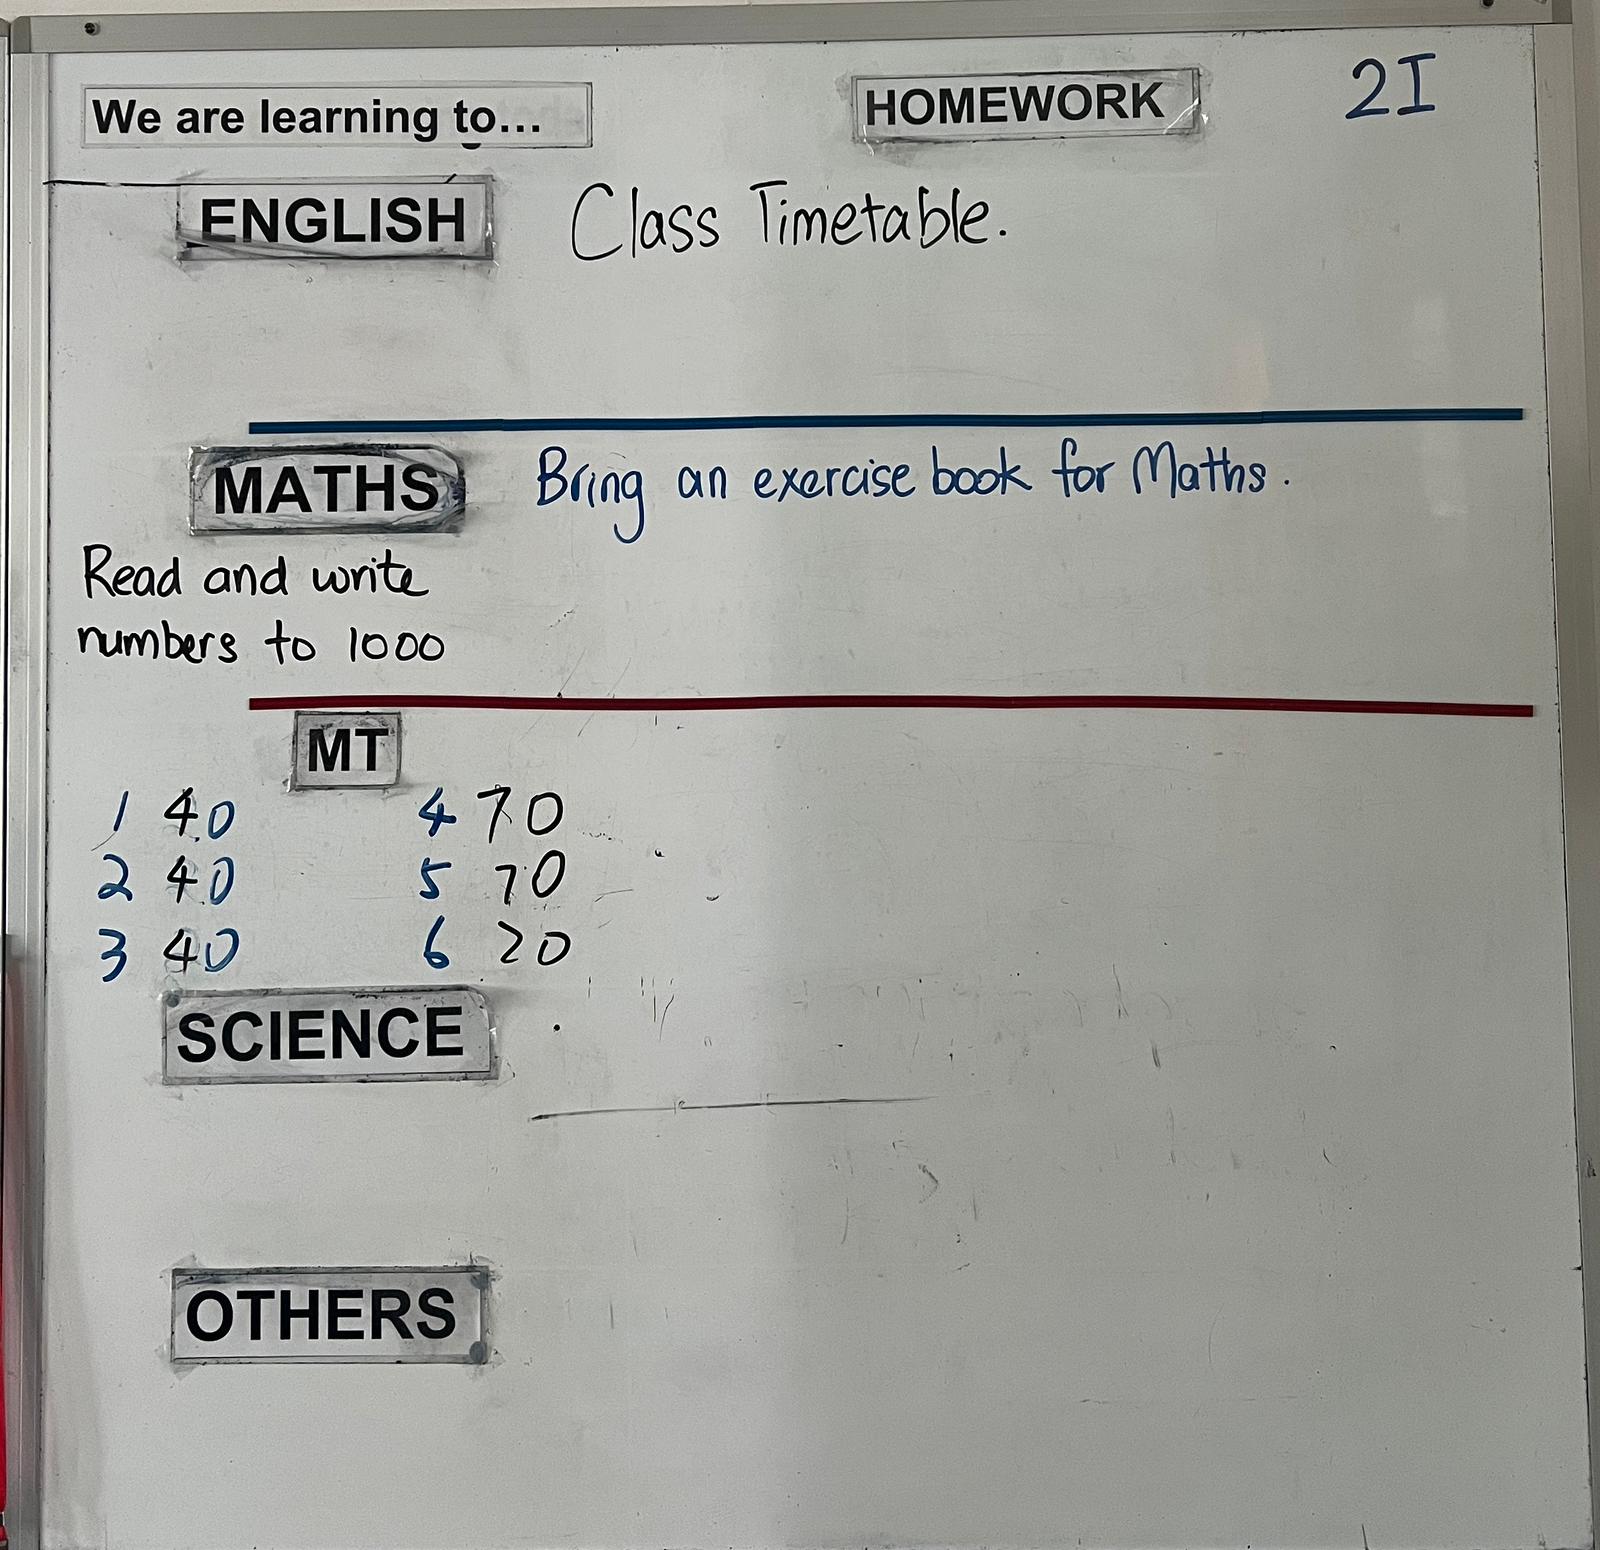 We are learning to...
HOMEWORK
2I
ENGLISH
Class Timetable.
MATHS
Bring an exercise book for Maths.
Read and write
numbers to 1000
MT
1 40 4 70
2 40 5 70
3 40 6 20
SCIENCE
OTHERS